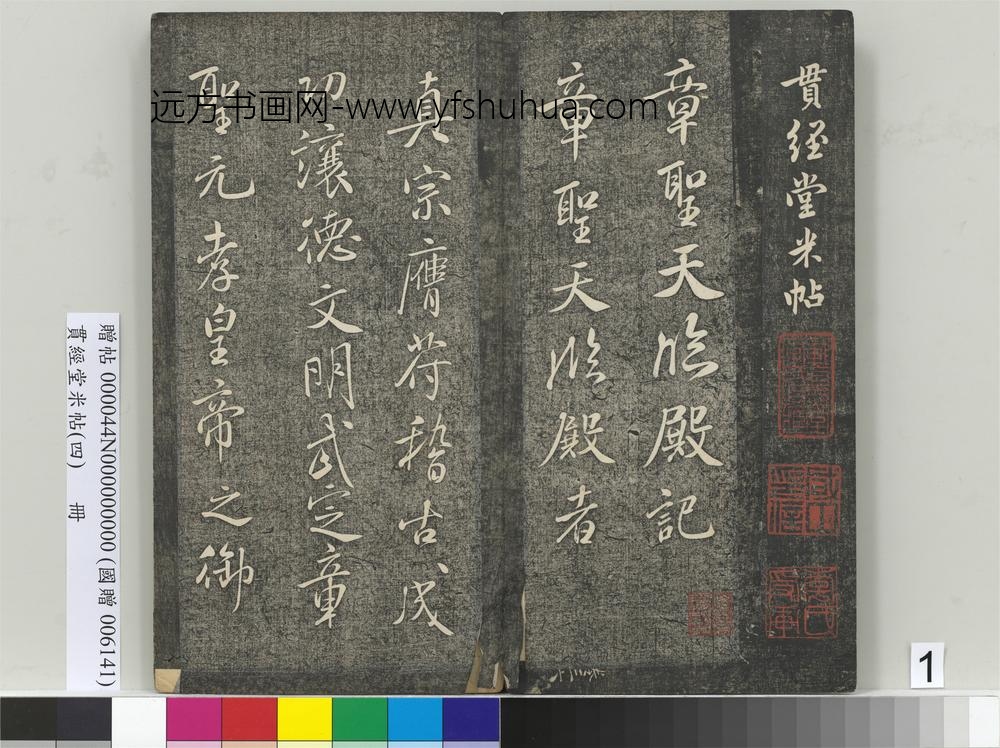 貫經堂米帖
章聖天臨殿記
章聖天臨殿者
真宗膺符稽古成
功讓德文明武定章
聖元孝皇帝之御
远方书画网-www.yfshuhua.com
贈帖 000044N000000000 (國贈 006141)
貫經堂米帖(四) 冊
1